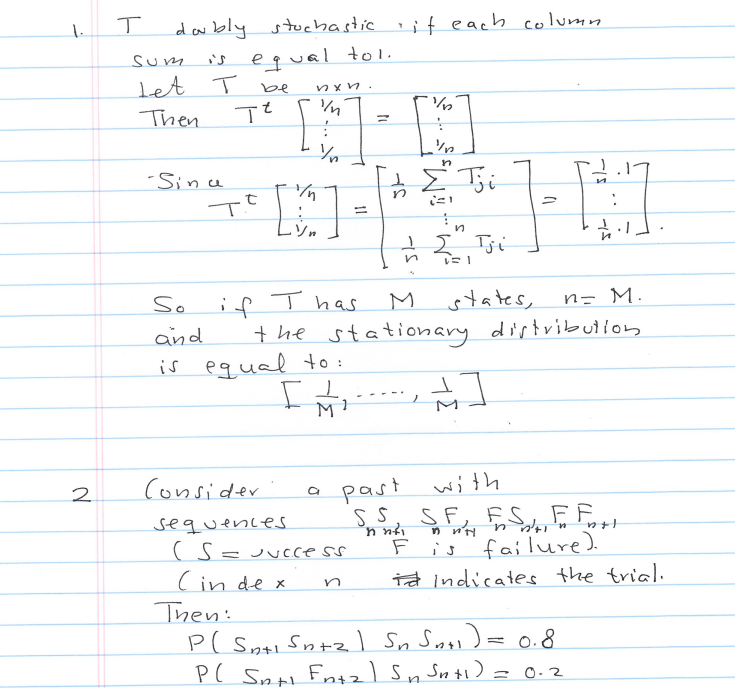 1. T doubly stochastic if each column
sum is equal to 1.
Let T be n×n.
Then T^t [1/n ⋮ 1/n] = [1/n ⋮ 1/n]
Since
T^t [1/n ⋮ 1/n] = [1/n ∑_{i=1}^{n} T_{ji} ⋮ 1/n ∑_{i=1}^{n} T_{ji}] = [1/n · 1 ⋮ 1/n · 1].
So if T has M states, n = M.
and the stationary distribution
is equal to:
[1/M, ....., 1/M]
2 Consider a past with
sequences S_n S_{n+1}, S_n F_{n+1}, F_n S_{n+1}, F_n F_{n+1}
(S = success F is failure).
(index n indicates the trial.
Then:
P( S_{n+1} S_{n+2} | S_n S_{n+1}) = 0.8
P( S_{n+1} F_{n+2} | S_n S_{n+1}) = 0.2